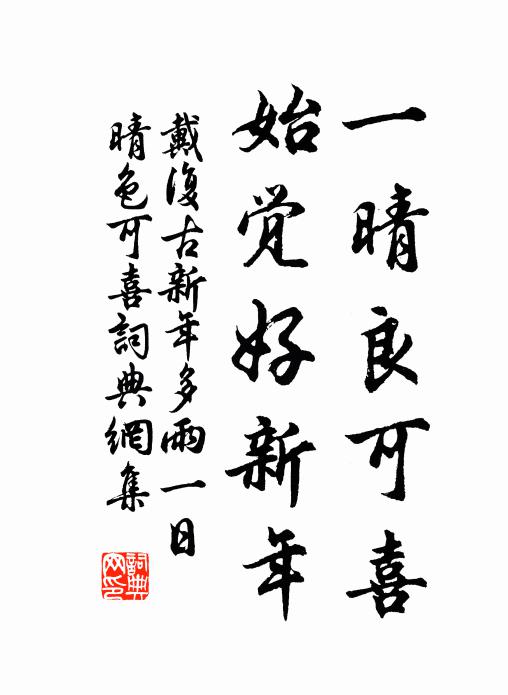 一晴良可喜
始觉好新年
戴復古新年多雨一日
晴色可喜詞典網集
詞典
网印